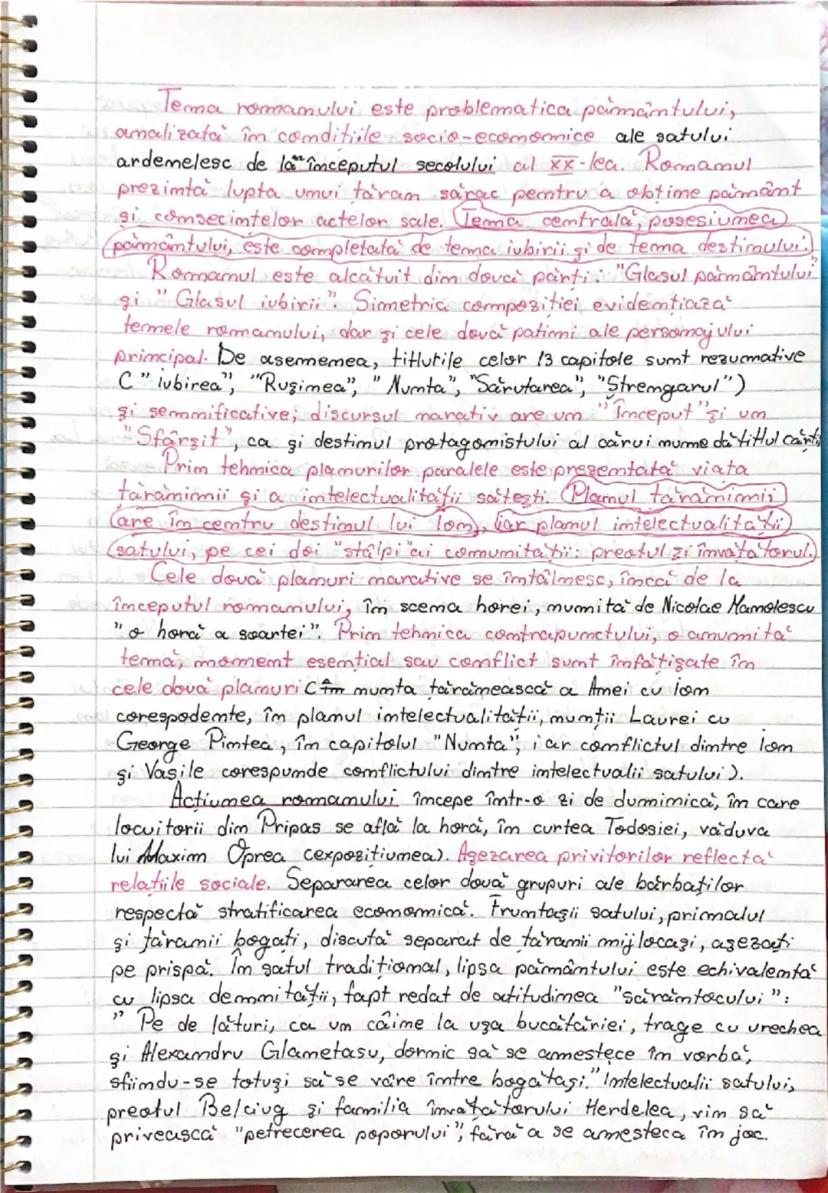 Tema romanului este problematica pământului,
analizată în condițiile socio-economice ale satului
ardemelesc de la începutul secolului al XX-lea. Romanul
prezintă lupta unui țăran sărac pentru a obține pământ
și consecințelor actelor sale. Tema centrală, posesiunea
pământului, este completată de tema iubirii și de tema destinului.
Romanul este alcătuit din două părți: "Glasul pământului"
și "Glasul iubirii". Simetria compoziției evidențiază
temele romanului, dar și cele două patimi ale personajului
principal. De asemenea, titlurile celor 13 capitole sunt rezumative
("iubirea", "Rușinea", "Nunta", "Sărutarea", "Ștrengarul")
și semnificative; discursul narativ are un "Început" și un
"Sfârșit", ca și destinul protagonistului al cărui nume dă titlul cărții
Prin tehnica planurilor paralele este prezentată viața
țărănimii și a intelectualității sătești. Planul țărănimii
are în centru destinul lui Ion, iar planul intelectualității
satului, pe cei doi "stâlpi" ai comunității: preotul și învățătorul.
Cele două planuri narative se întâlnesc, încă de la
începutul romanului, în scena horei, numită de Nicolae Manolescu
"o horă a soartei". Prin tehnica contrapunctului, o anumită
temă, moment esențial sau conflict sunt înfățișate în
cele două planuri ( nunta țărănească a Anei cu Ion
corespodente, în planul intelectualității, nunții Laurei cu
George Pintea, în capitolul "Nunta", iar conflictul dintre Ion
și Vasile corespunde conflictului dintre intelectualii satului).
Acțiunea romanului începe într-o zi de duminică, în care
locuitorii din Pripas se află la horă, în curtea Todosiei, văduva
lui Maxim Oprea (expozițiunea). Așezarea privitorilor reflectă
relațiile sociale. Separarea celor două grupuri ale bărbaților
respectă stratificarea economică. Fruntașii satului, primalul
și țăranii bogați, discută separat de țăranii mijlocași, așezați
pe prispă. În satul tradițional, lipsa pământului este echivalentă
cu lipsa demnității, fapt redat de atitudinea "sărăntocului":
"Pe de lături, ca un câine la ușa bucătăriei, trage cu urechea
și Alexandru Glanetașu, dornic să se amestece în vorbă,
sfiindu-se totuși să se vâre între bogătași." Intelectualii satului,
preotul Belciug și familia învățătorului Herdelea, vin să
privească "petrecerea poporului", fără a se amesteca în joc.